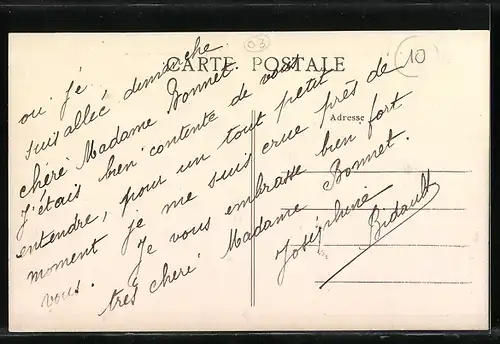 03
10
CARTE POSTALE
Adresse
ou je
suis allée dimanche
chère Madame Bonnet.
J'étais bien contente de vous
entendre, pour un tout petit
moment je me suis crue près de
vous. Je vous embrasse bien fort
très chère Madame Bonnet.
Joséphine
Bidault